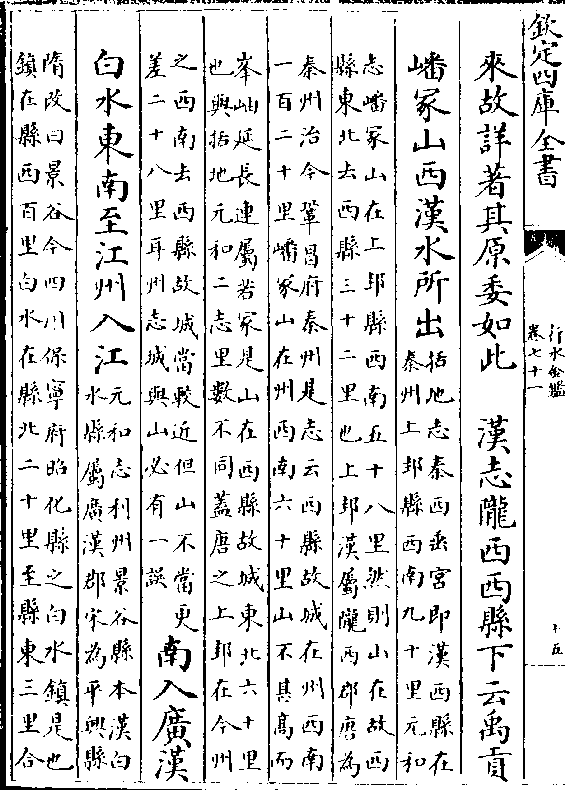 欽定四庫全書
行水金鑑
卷七十一
十五
來故詳著其原委如此　漢志隴西西縣下云禹貢
嶓冢山西漢水所出
括地志秦西垂宮即漢西縣在
秦州上邽縣西南九十里元和
志嶓冢山在上邽縣西南五十八里然則山在故西
縣東北去西縣三十二里也上邽漢屬隴西郡唐為
秦州治今鞏昌府秦州是志云西縣故城在州西南
一百二十里嶓冢山在州西南六十里山不甚高而
峯岫延長連屬若冢是山在西縣故城東北六十里
也與括地元和二志里數不同蓋唐之上邽在今州
之西南去西縣故城當較近但山不當更
差二十八里耳州志城與山必有一誤
南入廣漢
白水東南至江州入江
元和志利州景谷縣本漢白
水縣屬廣漢郡宋為平興縣
隋改曰景谷今四川保寧府昭化縣之白水鎮是也
鎮在縣西百里白水在縣北二十里至縣東三里合